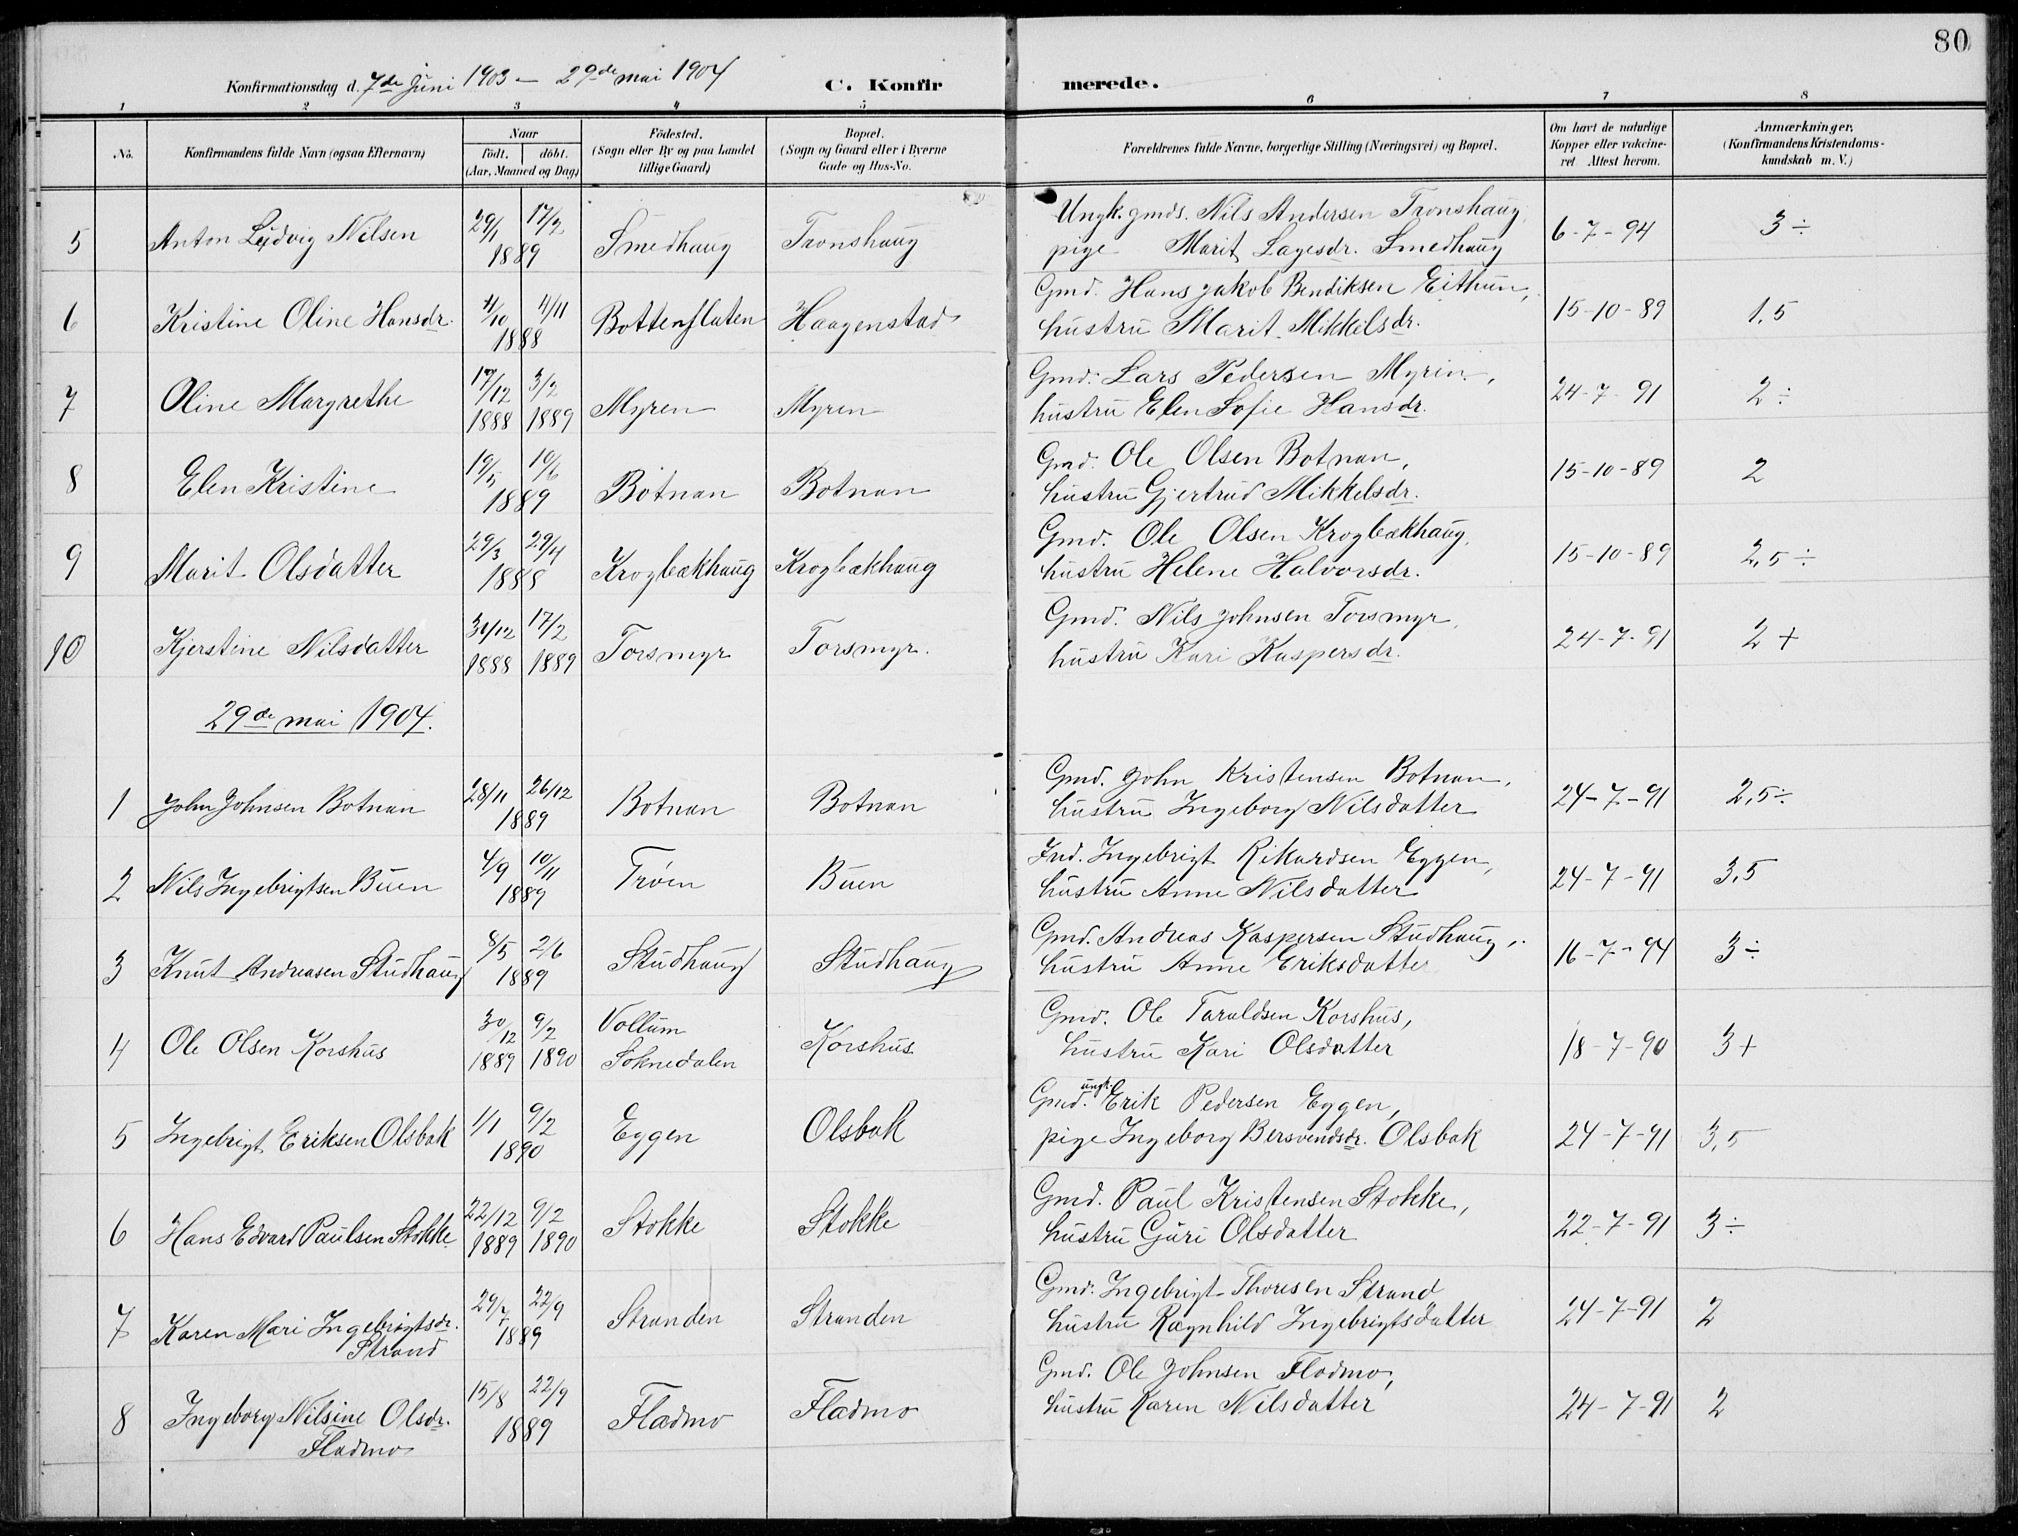 80
Konfirmationsdag d. 7de Juni 1903 - 29de mai 1904
C. Konfirmerede.
1 2 3 4 5 6 7 8
No.
Konfirmandens fulde Navn (ogsaa Efternavn)
Naar
födt. döbt.
(Aar, Maaned og Dag)
Födested.
(Sogn eller By og paa Landet
tillige Gaard)
Bopæl.
(Sogn og Gaard eller i Byerne
Gade og Hus-No.
Forældrenes fulde Navne, borgerlige Stilling (Næringsvei) og Bopæl.
Om havt de naturlige
Kopper eller vakcine-
ret Attest herom.
Anmærkninger.
(Konfirmandens Kristendoms-
kundskab m. V.)
5 Anton Ludvig Nilsen 29/1 17/2 1889 Smedhaug Tronshaug
Ungk. gmds. Nils Andersen Tronshaug,
pige Marit Lagesdr. Smedhaug 6-7-94 3÷
6 Kristine Oline Hansdr. 4/10 4/11 1888 Bottenflaten Haagenstad
Gmd. Hans Jakob Bendiksen Eithun,
hustru Marit Mikkelsdr. 15-10-89 1,5
7 Oline Margrethe 17/12 1888 3/2 1889 Myren Myren
Gmd. Lars Pedersen Myrin,
hustru Elen Sofie Hansdr. 24-7-91 2÷
8 Elen Kristine 19/5 19/6 1889 Botnan Botnan
Gmd. Ole Olsen Botnan,
hustru Gjertrud Mikkelsdr. 15-10-89 2
9 Marit Olsdatter 29/3 29/4 1888 Krogbækhaug Krogbækhaug
Gmd. Ole Olsen Krogbækhaug,
hustru Helene Halvorsdr. 15-10-89 2,5÷
10 Kjerstine Nilsdatter 31/12 1888 17/2 1889 Torsmyr Torsmyr.
Gmd. Nils Johnsen Torsmyr,
hustru Kari Kaspersdr. 24-7-91 2+
29de mai 1904.
1 John Johnsen Botnan 28/11 26/12 1889 Botnan Botnan
Gmd. John Kristensen Botnan,
hustru Ingeborg Nilsdatter 24-7-91 2,5÷
2 Nils Ingebrigtsen Buen 4/9 10/11 1889 Trøen Buen
Ind. Ingebrigt Rikardsen Eggen,
hustru Anne Nilsdatter 24-7-91 3,5
3 Knut Andreasen Studhaug 8/5 2/6 1889 Studhaug Studhaug
Gmd. Andreas Kaspersen Studhaug,
hustru Anne Eriksdatter 16-7-94 3÷
4 Ole Olsen Korshus 30/12 1889 9/2 1890 Vollum Soknedalen Korshus
Gmd. Ole Taraldsen Korshus,
hustru Kari Olsdatter 18-7-90 3+
5 Ingebrigt Eriksen Olsbak 1/1 9/2 1890 Eggen Olsbak
Gmd. ungk. Erik Pedersen Eggen,
pige Ingeborg Bersvendsdr. Olsbak 24-7-91 3,5
6 Hans Edvard Paulsen Stokke 22/12 1889 9/2 1890 Stokke Stokke
Gmd. Paul Kristensen Stokke,
hustru Guri Olsdatter 22-7-91 3÷
7 Karen Mari Ingebrigtsdr. Strand 29/7 22/9 1889 Stranden Stranden
Gmd. Ingebrigt Thoresen Strand
hustru Ragnhild Ingebrigtsdatter 24-7-91 2
8 Ingeborg Nilsine Olsdr. Fladmo 15/8 22/9 1889 Fladmo Fladmo
Gmd. Ole Johnsen Fladmo,
hustru Karen Nilsdatter 24-7-91 2